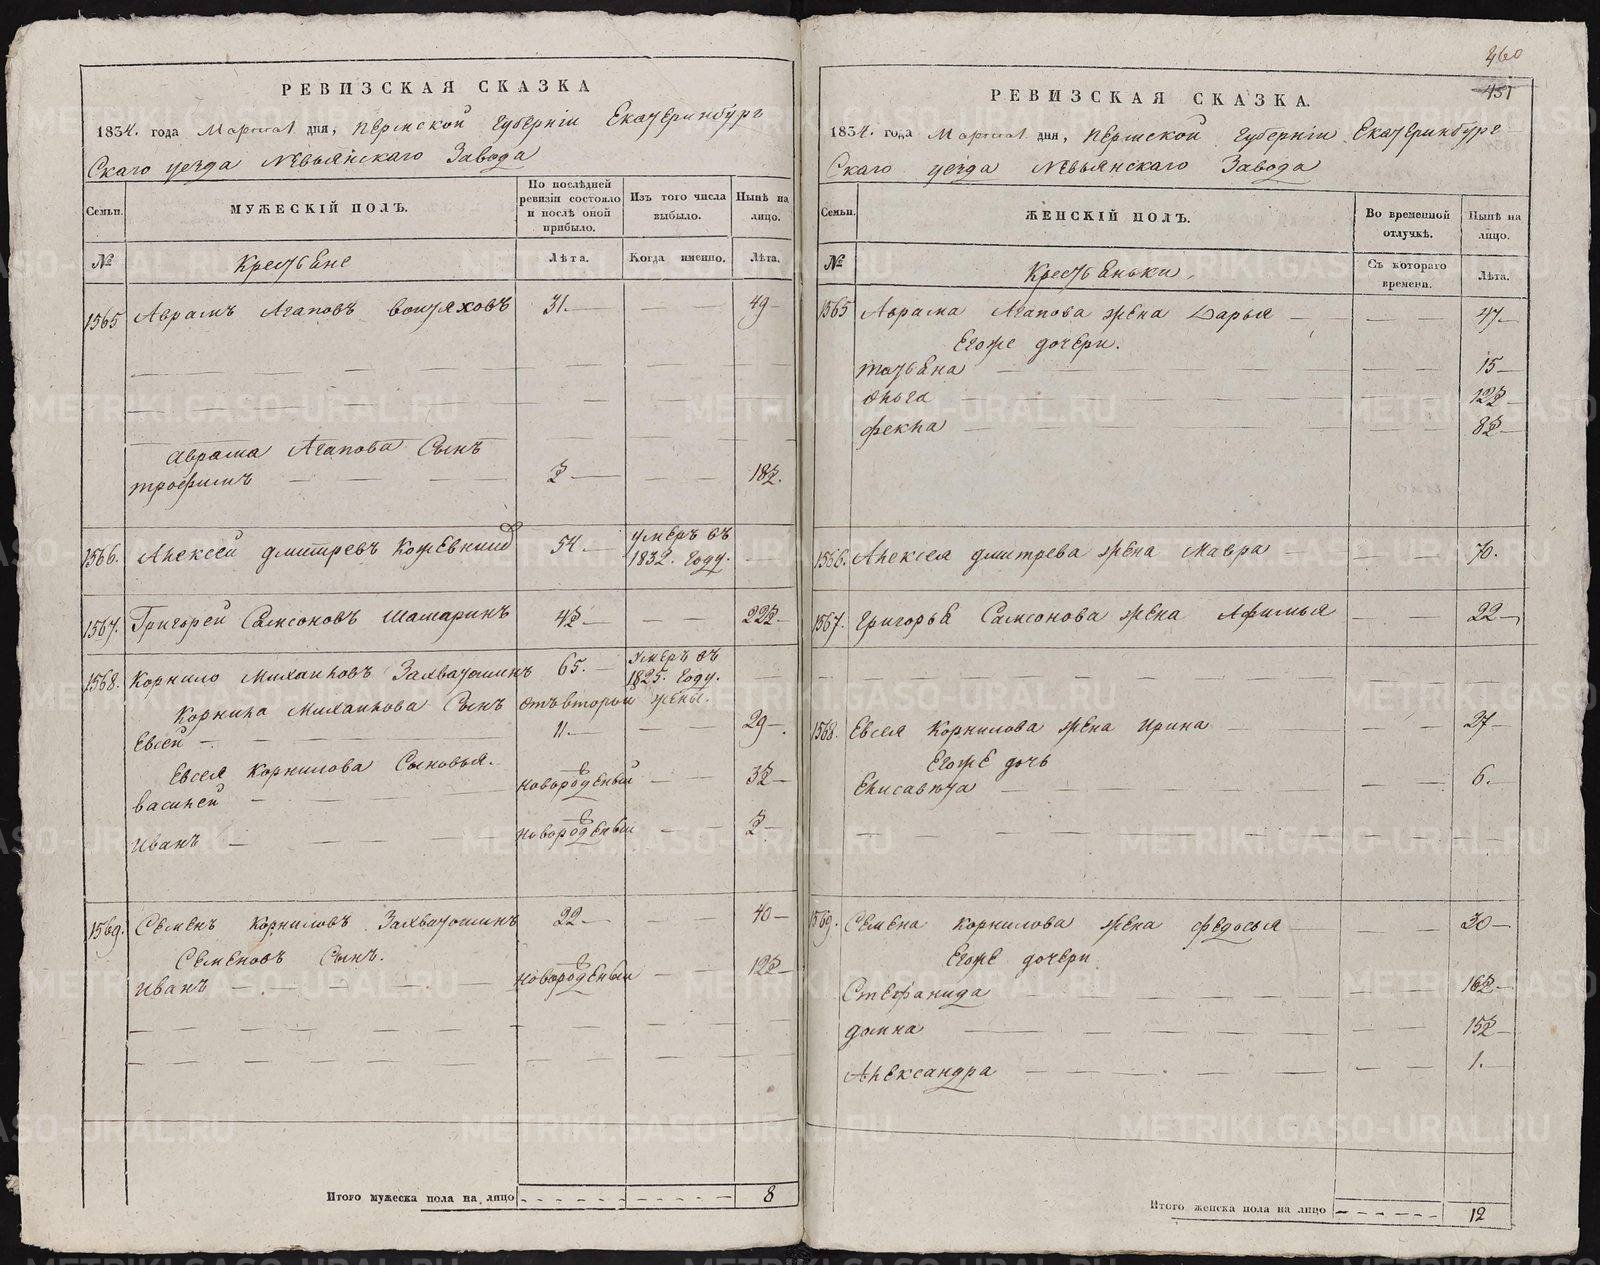 РЕВИЗСКАЯ СКАЗКА
1834. года Марта дня, Пермской Губернiи Екатеринбург
Скаго уезда Невьянскаго Завода
Семьи. МУЖЕСКІЙ ПОЛЪ. По послѣдней ревизіи состояло и послѣ оной прибыло. Изъ того числа выбыло. Нынѣ на лицо.
№ Крестьяне Лѣта. Когда именно. Лѣта.
1565 Аврамъ Агаповъ вотяховъ 31. 49
Аврама Агапова Сынъ
трофимъ ½ 18½.
1566. Алексей дмитревъ Кожевник 54. умеръ въ 1832. Году.
1567. Григорей Самсоновъ Шамаринъ 4½ 22½
1568. Корнило Михаиловъ Захватошинъ 65. умеръ въ 1825. Году.
Корнила Михаилова Сынъ отъ второй жены.
Евсей 11. 29
Евсея Корнилова Сыновья.
василей новорожденый 3½
Иванъ новорожденый ½
1569. Семенъ Корниловъ Захватошинъ 22 40
Семеновъ Сынъ.
Иванъ новорожденый 12½
Итого мужеска пола на лицо 8
460
451
РЕВИЗСКАЯ СКАЗКА.
1834. года Марта дня, Пермской Губернiи Екатеринбург
Скаго уезда Невьянскаго Завода
Семьи. ЖЕНСКІЙ ПОЛЪ. Во временной отлучкѣ. Нынѣ на лицо.
№ Крестьянки. Съ котораго времени. Лѣта.
1565 Аврама Агапова жена Дарья 47
Егоже дочери.
татьяна 15
Ольга 12½
фекла 8½
1566. Алексея дмитрева жена Мавра 70.
1567. Григорья Самсонова жена Афимья 22
1568. Евсея Корнилова жена Ирина 27
Егоже дочь
Елисавета 6.
1569. Семена Корнилова жена федосья 30
Егоже дочери
Стефанида 16½
домна 15½
Александра 1.
Итого женска пола на лицо 12
METRIKI.GASO-URAL.RU